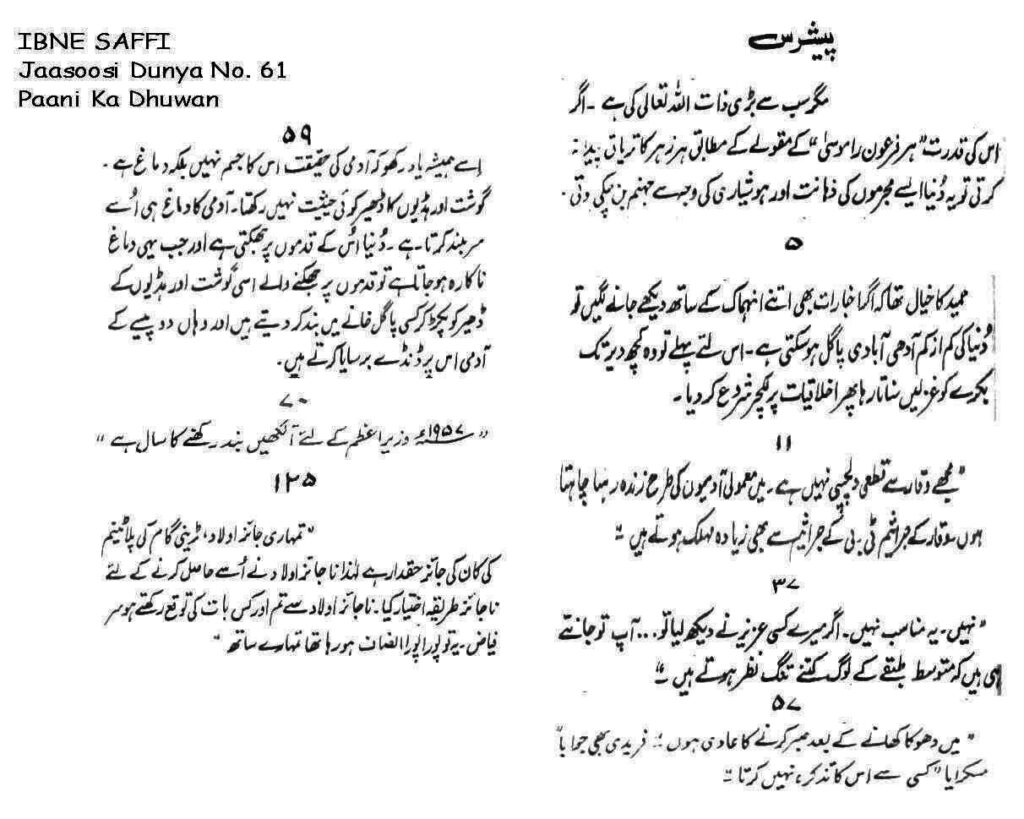 IBNE SAFFI
Jaasoosi Dunya No. 61
Paani Ka Dhuwan
پیشرس
مگر سب سے بڑی ذات اللہ تعالی کی ہے ۔ اگر
اس کی قدرت "ہر فرعون را موسیٰ" کے مقولے کے مطابق ہر زہر کا تریاق پیدا نہ
کرتی تو یہ دُنیا ایسے مجرموں کی ذہانت اور ہوشیاری کی وجہ سے جہنم بن چکی ہوتی ۔
۵
حمید کا خیال تھا کہ اگر اخبارات بھی اتنے انہماک کے ساتھ دیکھے جانے لگیں تو
دُنیا کی کم از کم آدھی آبادی پاگل ہو سکتی ہے ۔ اس لئے پہلے تو وہ کچھ دیر تک
بکرے کو غزلیں سناتا رہا پھر اخلاقیات پر لکچر شروع کر دیا ۔
۱۱
"مجھے وقار سے قطعی دلچسپی نہیں ہے ۔ میں معمولی آدمیوں کی طرح زندہ رہنا چاہتا
ہوں وقار کے جراثیم ٹی ۔ بی کے جراثیم سے بھی زیادہ مہلک ہوتے ہیں ۔"
۳۷
"نہیں ۔ یہ مناسب نہیں ۔ اگر میرے کسی عزیز نے دیکھ لیا تو ... آپ تو جانتے
ہی ہیں کہ متوسط طبقے کے لوگ کتنے تنگ نظر ہوتے ہیں ۔"
۵۷
"میں دھوکا کھانے کے بعد صبر کرنے کا عادی ہوں ۔" فریدی بھی جواباً
مسکرایا "کسی سے اس کا تذکرہ نہیں کرتا ۔"
۵۹
اسے ہمیشہ یاد رکھو کہ آدمی کی حقیقت اس کا جسم نہیں بلکہ دماغ ہے ۔
گوشت اور ہڈیوں کا ڈھیر کوئی حیثیت نہیں رکھتا ۔ آدمی کا دماغ ہی اُسے
سر بلند کرتا ہے ۔ دُنیا اُس کے قدموں پر جھکتی ہے اور جب یہی دماغ
ناکارہ ہو جاتا ہے تو قدموں پر جھکنے والے اسی گوشت اور ہڈیوں کے
ڈھیر کو پکڑ کر کسی پاگل خانے میں بند کر دیتے ہیں اور وہاں دو پیسے کے
آدمی اس پر ڈنڈے برسایا کرتے ہیں ۔
۷۰
"۱۹۵۷ء وزیر اعظم کے لئے آنکھیں بند رکھنے کا سال ہے"
۱۲۵
"تمہاری جائز اولاد، ٹرینی گام کی پلاٹینم
کی کان کی جائز حقدار ہے لہٰذا ناجائز اولاد نے اُسے حاصل کرنے کے لئے
ناجائز طریقہ اختیار کیا ۔ ناجائز اولاد سے تم اور کس بات کی توقع رکھتے ہو سر
فیاض ۔ یہ تو پورا پورا انصاف ہو رہا تھا تمہارے ساتھ"